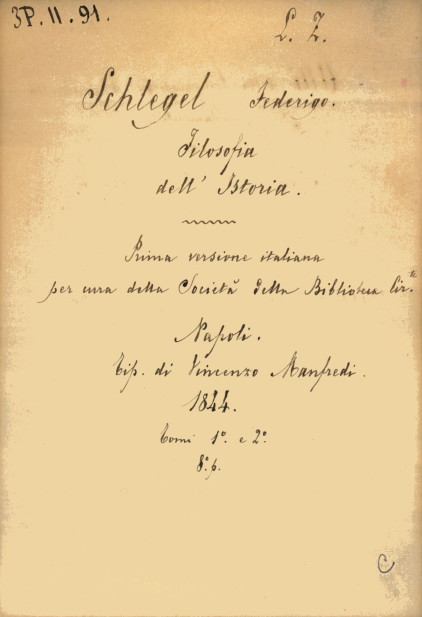 3P.II.91.
L. Z.
Schlegel Federigo.
Filosofia
dell' Istoria.
Prima versione italiana
per cura della Società della Biblioteca Cir.te
Napoli.
Tip. di Vincenzo Manfredi.
1844.
Tomi 1º. e 2º.
8º. p.
C